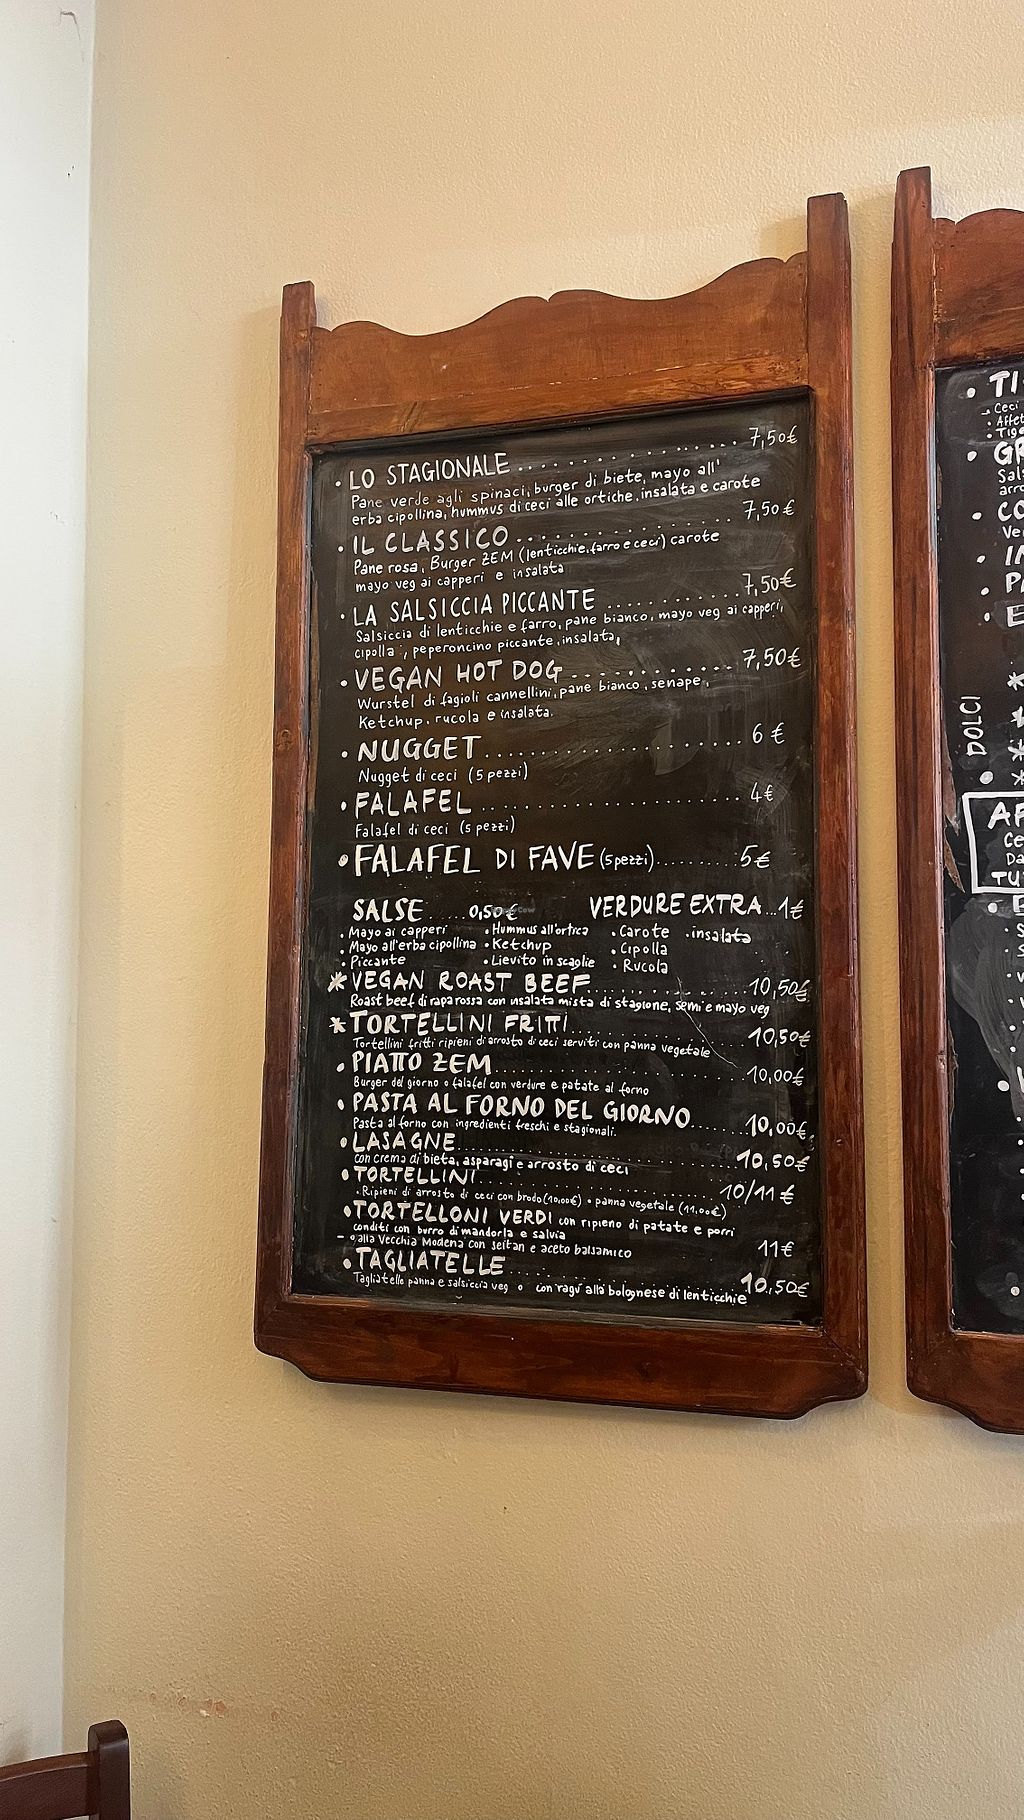 • LO STAGIONALE ................ 7,50€
Pane verde agli spinaci, burger di biete, mayo all'
erba cipollina, hummus di ceci alle ortiche, insalata e carote
• IL CLASSICO ................ 7,50€
Pane rosa, Burger ZEM (lenticchie, farro e ceci) carote
mayo veg ai capperi e insalata
• LA SALSICCIA PICCANTE ................ 7,50€
Salsiccia di lenticchie e farro, pane bianco, mayo veg ai capperi,
cipolla, peperoncino piccante, insalata,
• VEGAN HOT DOG ................ 7,50€
Wurstel di fagioli cannellini, pane bianco, senape,
Ketchup, rucola e insalata.
• NUGGET ................ 6 €
Nugget di ceci (5 pezzi)
• FALAFEL ................ 4€
Falafel di ceci (5 pezzi)
• FALAFEL DI FAVE (5 pezzi) ......... 5€
SALSE ..... 0,50€
• Mayo ai capperi • Hummus all'ortica
• Mayo all'erba cipollina • Ketchup
• Piccante • Lievito in scaglie
VERDURE EXTRA ... 1€
• Carote • insalata
• Cipolla
• Rucola
* VEGAN ROAST BEEF ................ 10,50€
Roast beef di rapa rossa con insalata mista di stagione, semi e mayo veg
* TORTELLINI FRITTI ................ 10,50€
Tortellini fritti ripieni di arrosto di ceci serviti con panna vegetale
• PIATTO ZEM ................ 10,00€
Burger del giorno o falafel con verdure e patate al forno
• PASTA AL FORNO DEL GIORNO ....... 10,00€
Pasta al forno con ingredienti freschi e stagionali.
• LASAGNE ................ 10,50€
con crema di bieta, asparagi e arrosto di ceci
• TORTELLINI ................ 10/11 €
• Ripieni di arrosto di ceci con brodo (10,00€) • panna vegetale (11,00€)
• TORTELLONI VERDI con ripieno di patate e porri
conditi con burro di mandorla e salvia
- o alla Vecchia Modena con seitan e aceto balsamico 11€
• TAGLIATELLE ................ 10,50€
Tagliatelle panna e salsiccia veg o con ragù alla bolognese di lenticchie
DOLCI